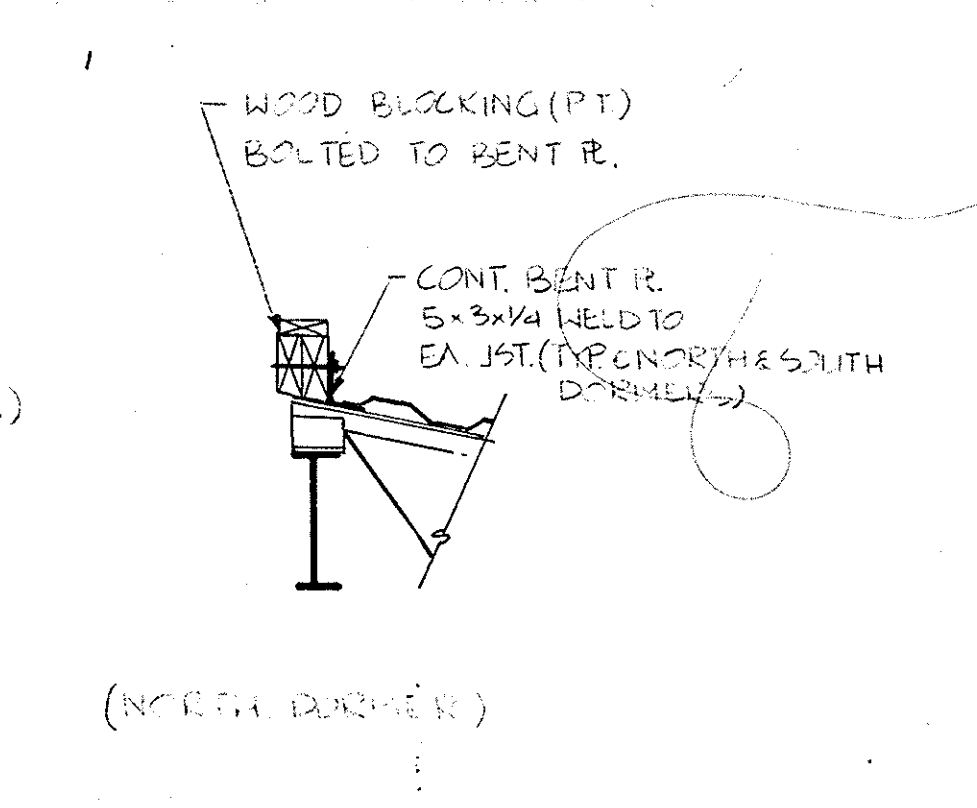 WOOD BLOCKING (P.T.)
BOLTED TO BENT PL.
CONT. BENT PL.
5×3×1/4 WELD TO
EA. JST. (TYP. @ NORTH & SOUTH
DORMERS)
)
(NORTH DORMER)